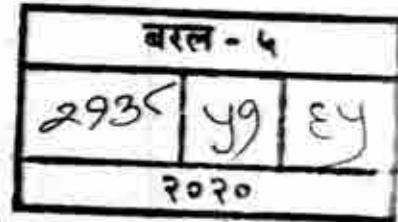 बरल - ५
२१३८ ५१ ६५
२०२०